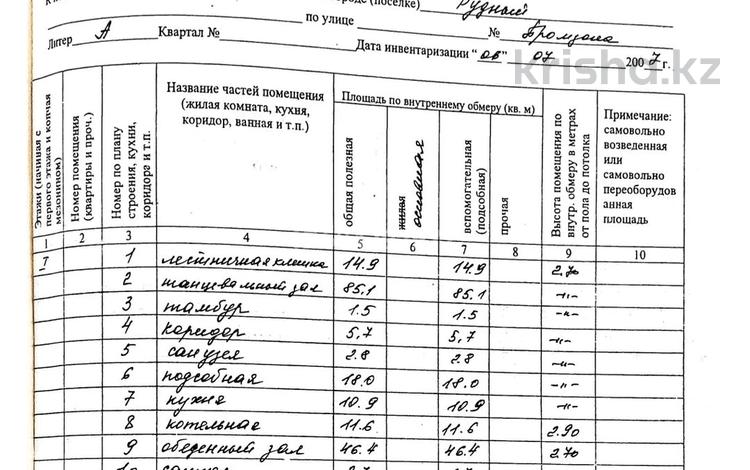 городе (поселке) Рудный
по улице № Промзона
Литер А Квартал № Дата инвентаризации "06" 07 2007 г.
krisha.kz
Этажи (начиная с первого этажа и кончая мезонином)
Номер помещения (квартиры и проч.)
Номер по плану строения, кухни, коридоре и т.п.
Название частей помещения (жилая комната, кухня, коридор, ванная и т.п.)
Площадь по внутреннему обмеру (кв. м)
общая полезная
жилая основная
вспомогательная (подсобная)
прочая
Высота помещения по внутр. обмеру в метрах от пола до потолка
Примечание:
самовольно
возведенная
или
самовольно
переоборудов
анная
площадь
1 2 3 4 5 6 7 8 9 10
I 1 лестничная клетка 14.9 14.9 2.70
2 танцевальный зал 85.1 85.1 -"-
3 тамбур 1.5 1.5 -"-
4 коридор 5,7 5,7 -"-
5 санузел 2.8 2.8 -"-
6 подсобная 18.0 18.0 -"-
7 кухня 10.9 10.9 -"-
8 котельная 11.6 11.6 2.90
9 обеденный зал 46.4 46.4 2.70